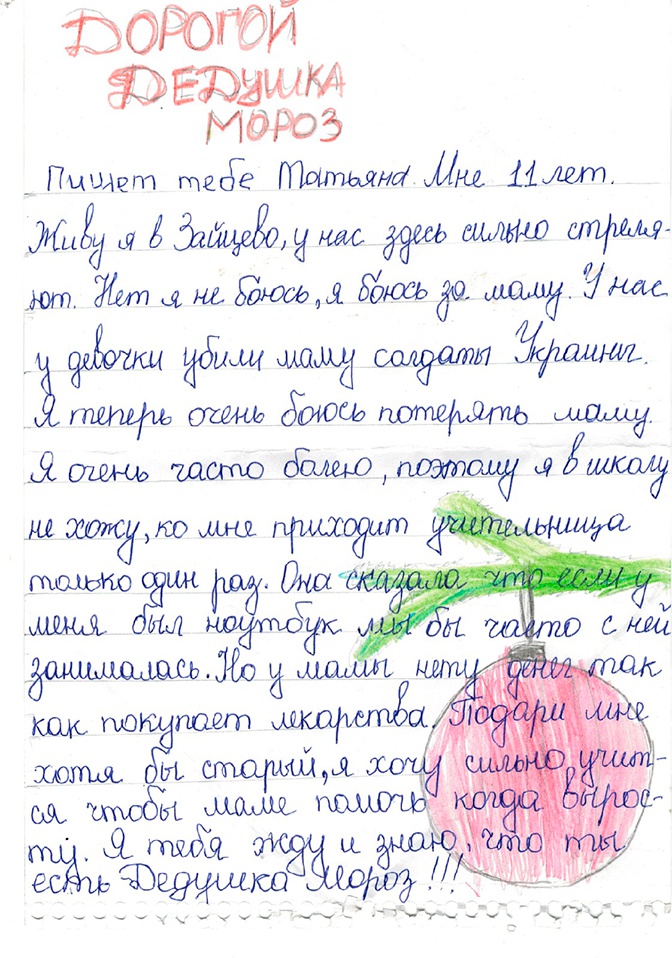 ДОРОГОЙ
ДЕДУШКА
МОРОЗ
Пишет тебе Татьяна. Мне 11 лет.
Живу я в Зайцево, у нас здесь сильно стреля-
ют. Нет я не боюсь, я боюсь за маму. У нас
у девочки убили маму солдаты Украины.
Я теперь очень боюсь потерять маму.
Я очень часто болею, поэтому я в школу
не хожу, ко мне приходит учительница
только один раз. Она сказала что если у
меня был ноутбук мы бы часто с ней
занималась. Но у мамы нету денег так
как покупает лекарства. Подари мне
хотя бы старый, я хочу сильно учит-
ся чтобы маме помочь когда вырос-
ту. Я тебя жду и знаю, что ты
есть Дедушка Мороз!!!